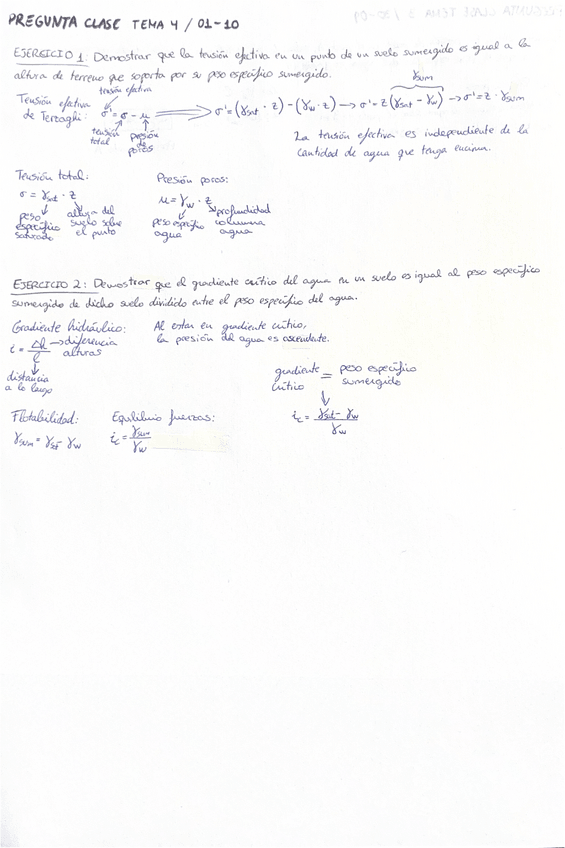 PREGUNTA CLASE TEMA 4 / 01-10
EJERCICIO 1: Demostrar que la tensión efectiva en un punto de un suelo sumergido es igual a la
altura de terreno que soporta por su peso específico sumergido.
tensión efectiva
Tensión efectiva
de Terzaghi: σ' = σ - u ⟹ σ' = (γsat · z) - (γw · z) → σ' = z (γsat - γw) → σ' = z · γsum
γsum
tensión total
presión de poros
La tensión efectiva es independiente de la
cantidad de agua que tenga encima.
Tensión total:
σ = γsat · z
peso específico saturado
altura del suelo sobre el punto
Presión poros:
u = γw · z
peso específico agua
profundidad columna agua
EJERCICIO 2: Demostrar que el gradiente crítico del agua en un suelo es igual al peso específico
sumergido de dicho suelo dividido entre el peso específico del agua.
Gradiente hidráulico:
i = Δh / l
→ diferencia alturas
distancia a lo largo
Al estar en gradiente crítico,
la presión del agua es ascendente.
gradiente crítico = peso específico sumergido
ic = γsat - γw / γw
Flotabilidad:
γsum = γsat - γw
Equilibrio fuerzas:
ic = γsum / γw